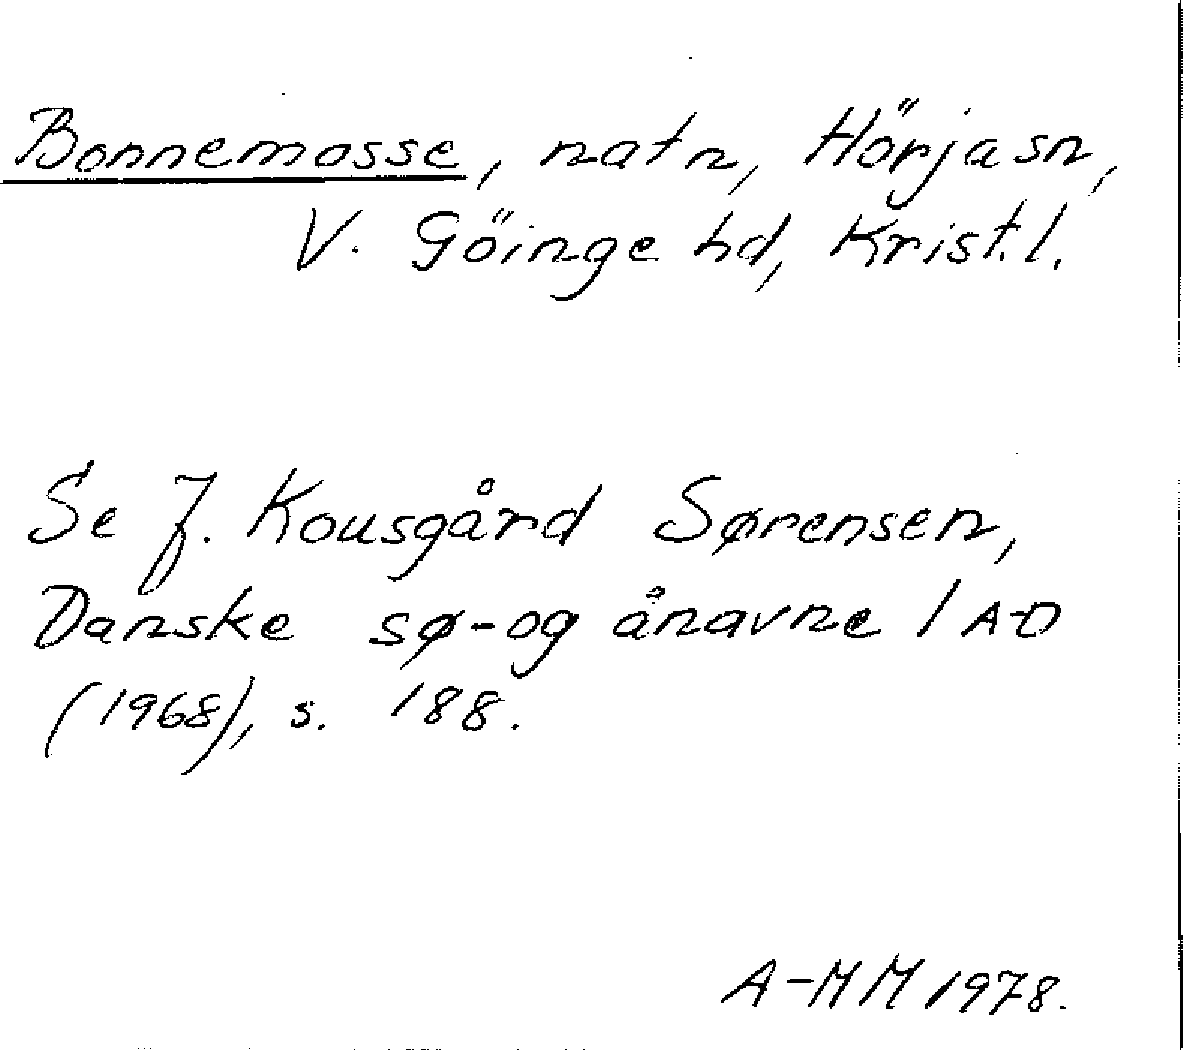 Bonnemosse, natn, Hörja sn,
V. Göinge hd, Krist. l.
Se J. Kousgård Sørensen,
Danske sø- og ånavne 1 A-D
(1968), s. 188.
A-MM 1978.